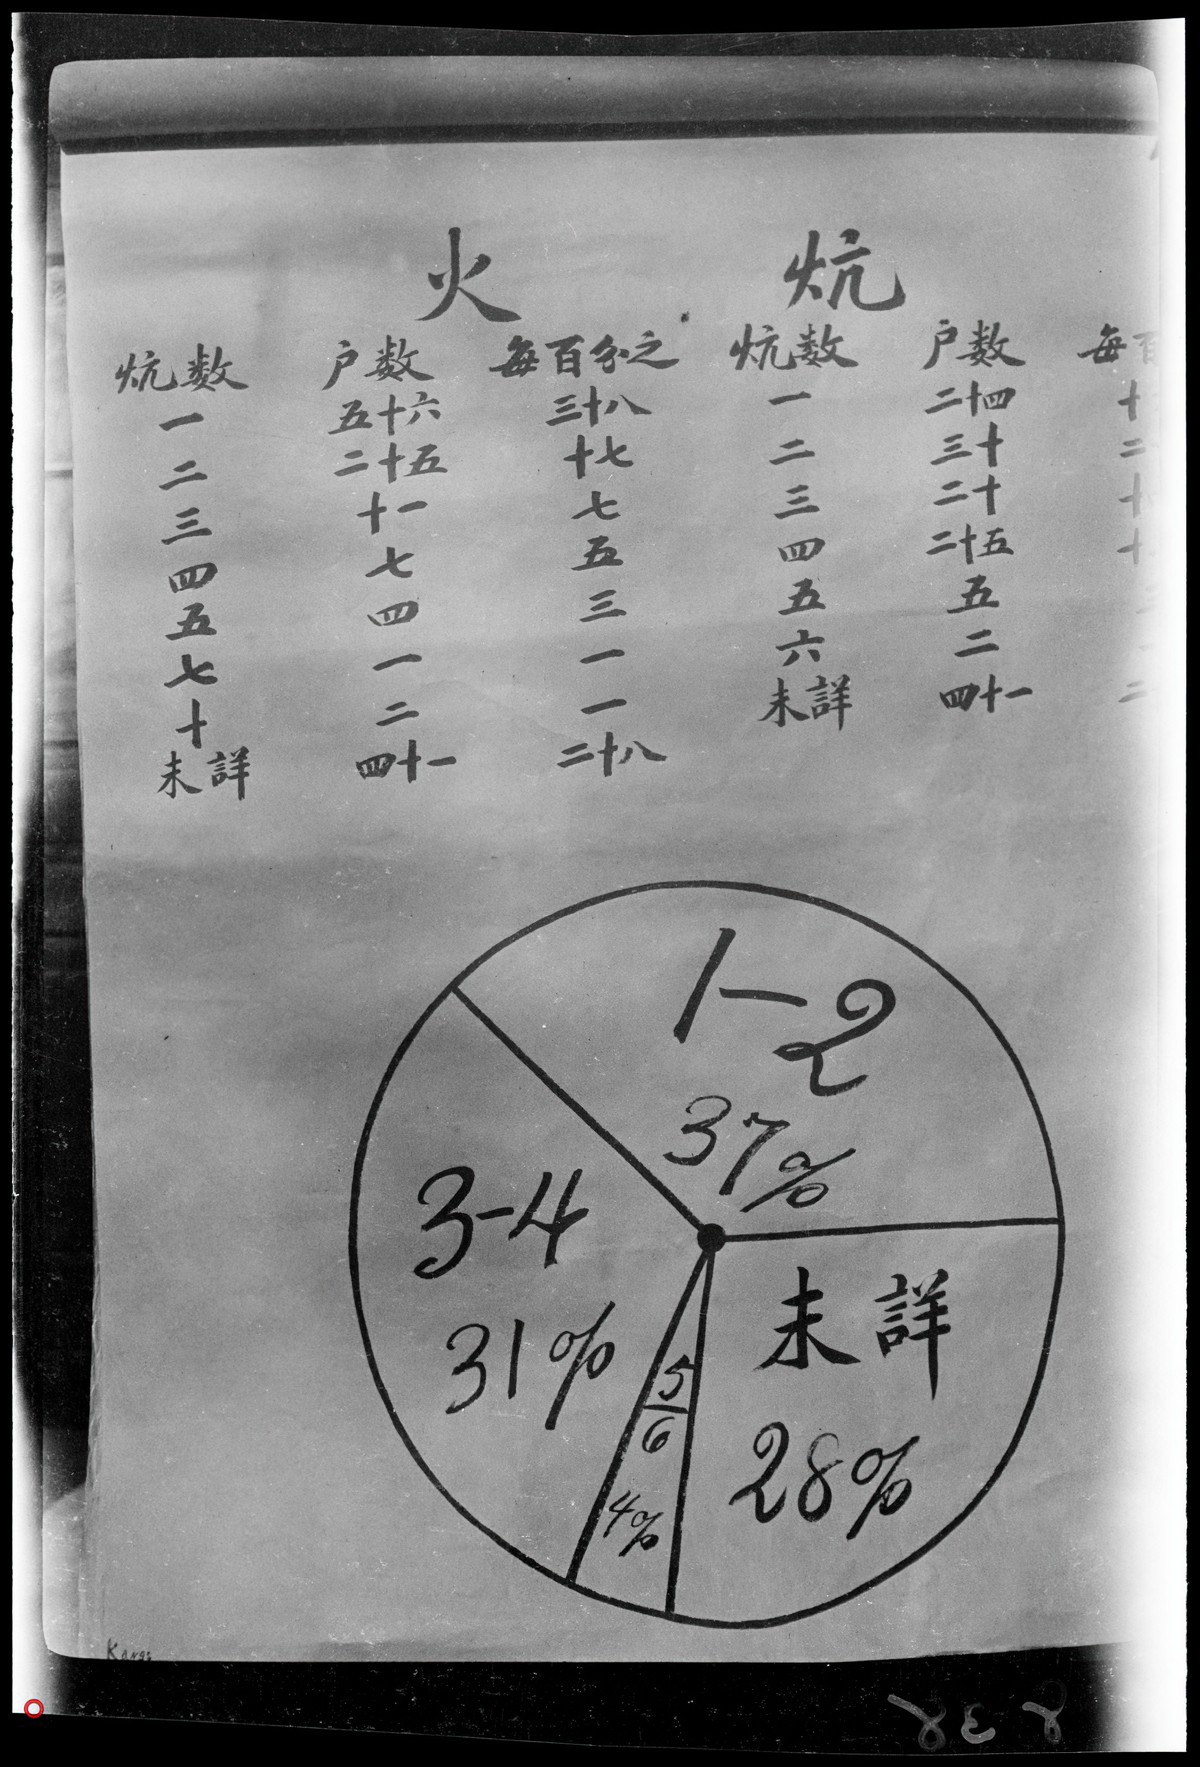 火 炕
炕数 户数 每百分之 炕数 户数 每百
一 五十六 三十八 一 二十四 十
二 二十五 十七 二 三十 二
三 十一 七 三 二十 十
四 七 五 四 二十五 十
五 四 三 五 五
七 一 一 六 二
十 二 一 未詳 四十一 二
未詳 四十一 二十八
1-2
37%
3-4
31%
5
6
4%
未詳
28%
Kangs